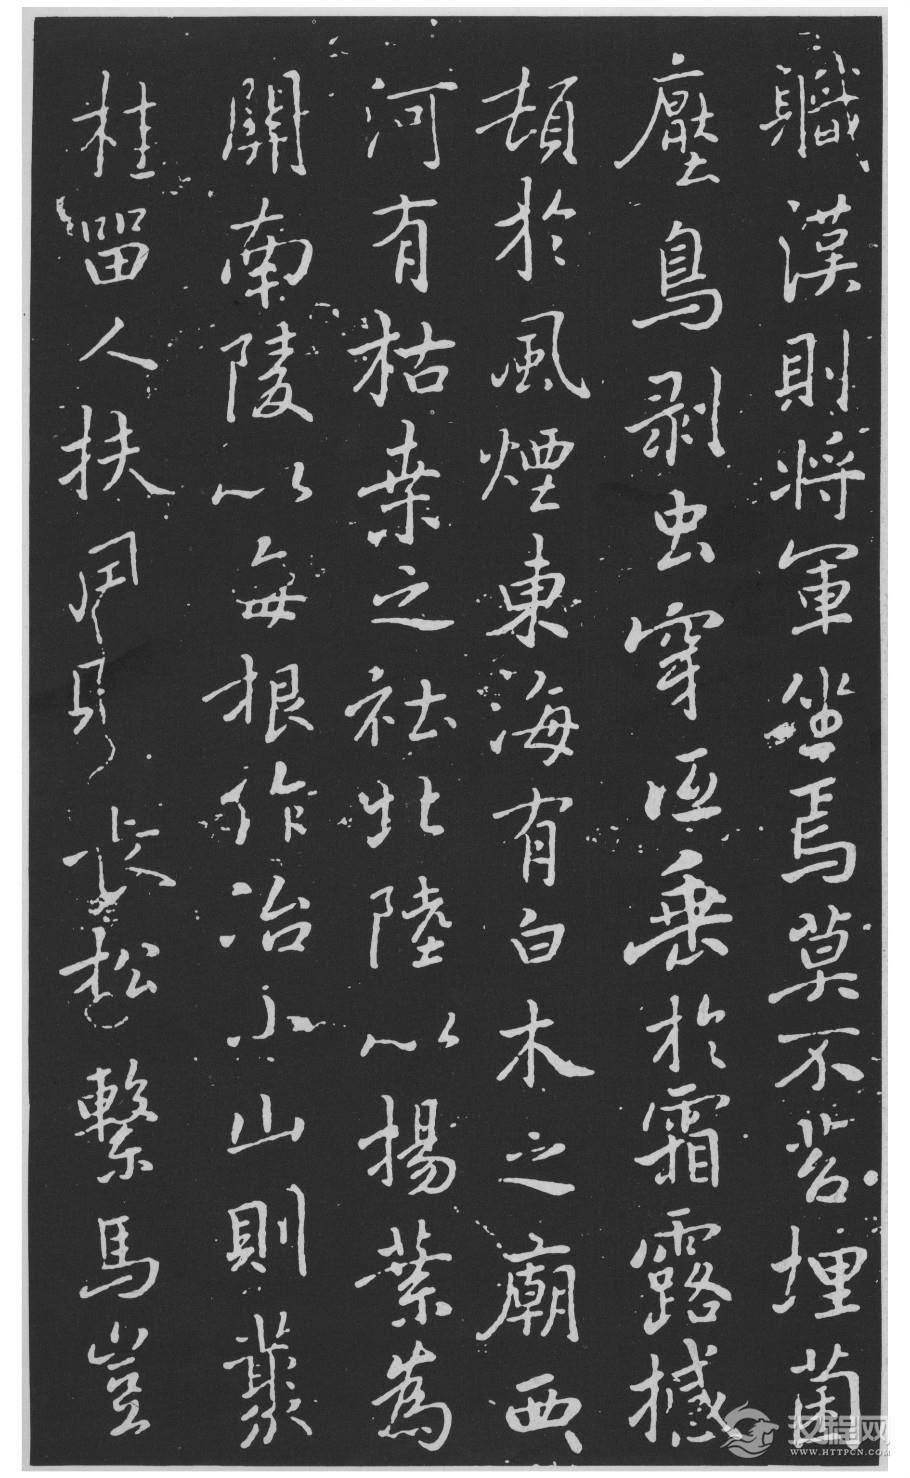 職漢則將軍坐焉莫不苔埋菌
壓鳥剥虫穿低垂於霜露撼
頓於風煙東海有白木之廟西
河有枯桒之社北陸以楊葉為
關南陵以每根作冶小山則叢
桂留人扶長松繫馬豈
汉程网
WWW.HTTPCN.COM